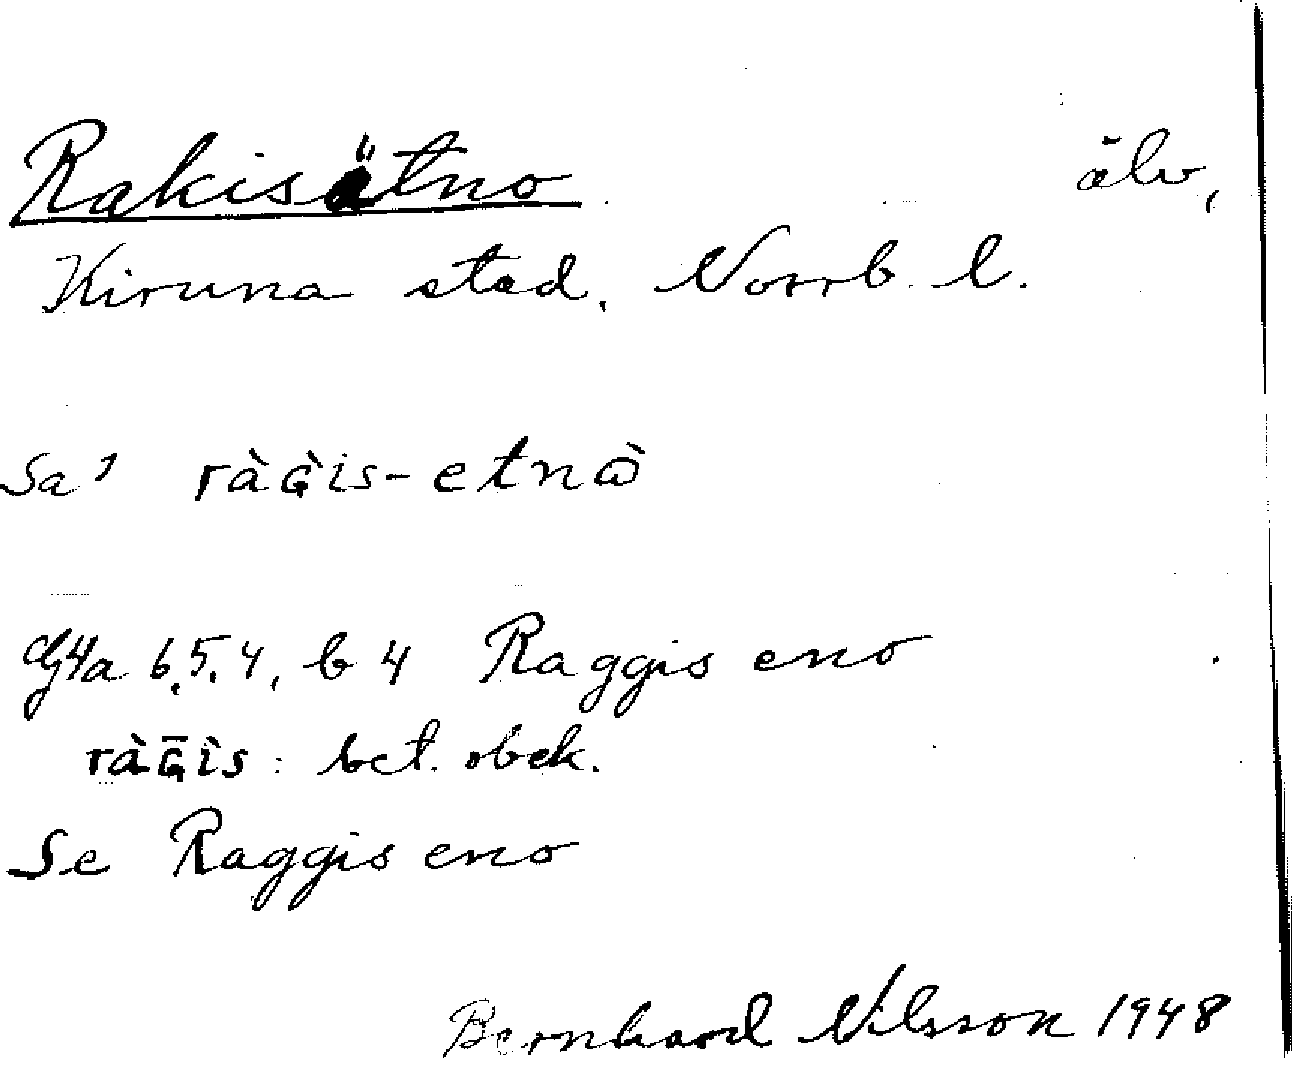 Rakisätno älv,
Kiruna stad, Norrb. l.
Sa' ràɢ̀is-etnɷ̀
G4a 6.5.4, b 4 Raggis eno
ràɢ̄ìs: bet. obek.
Se Raggis eno
Bernhard Nilsson 1948